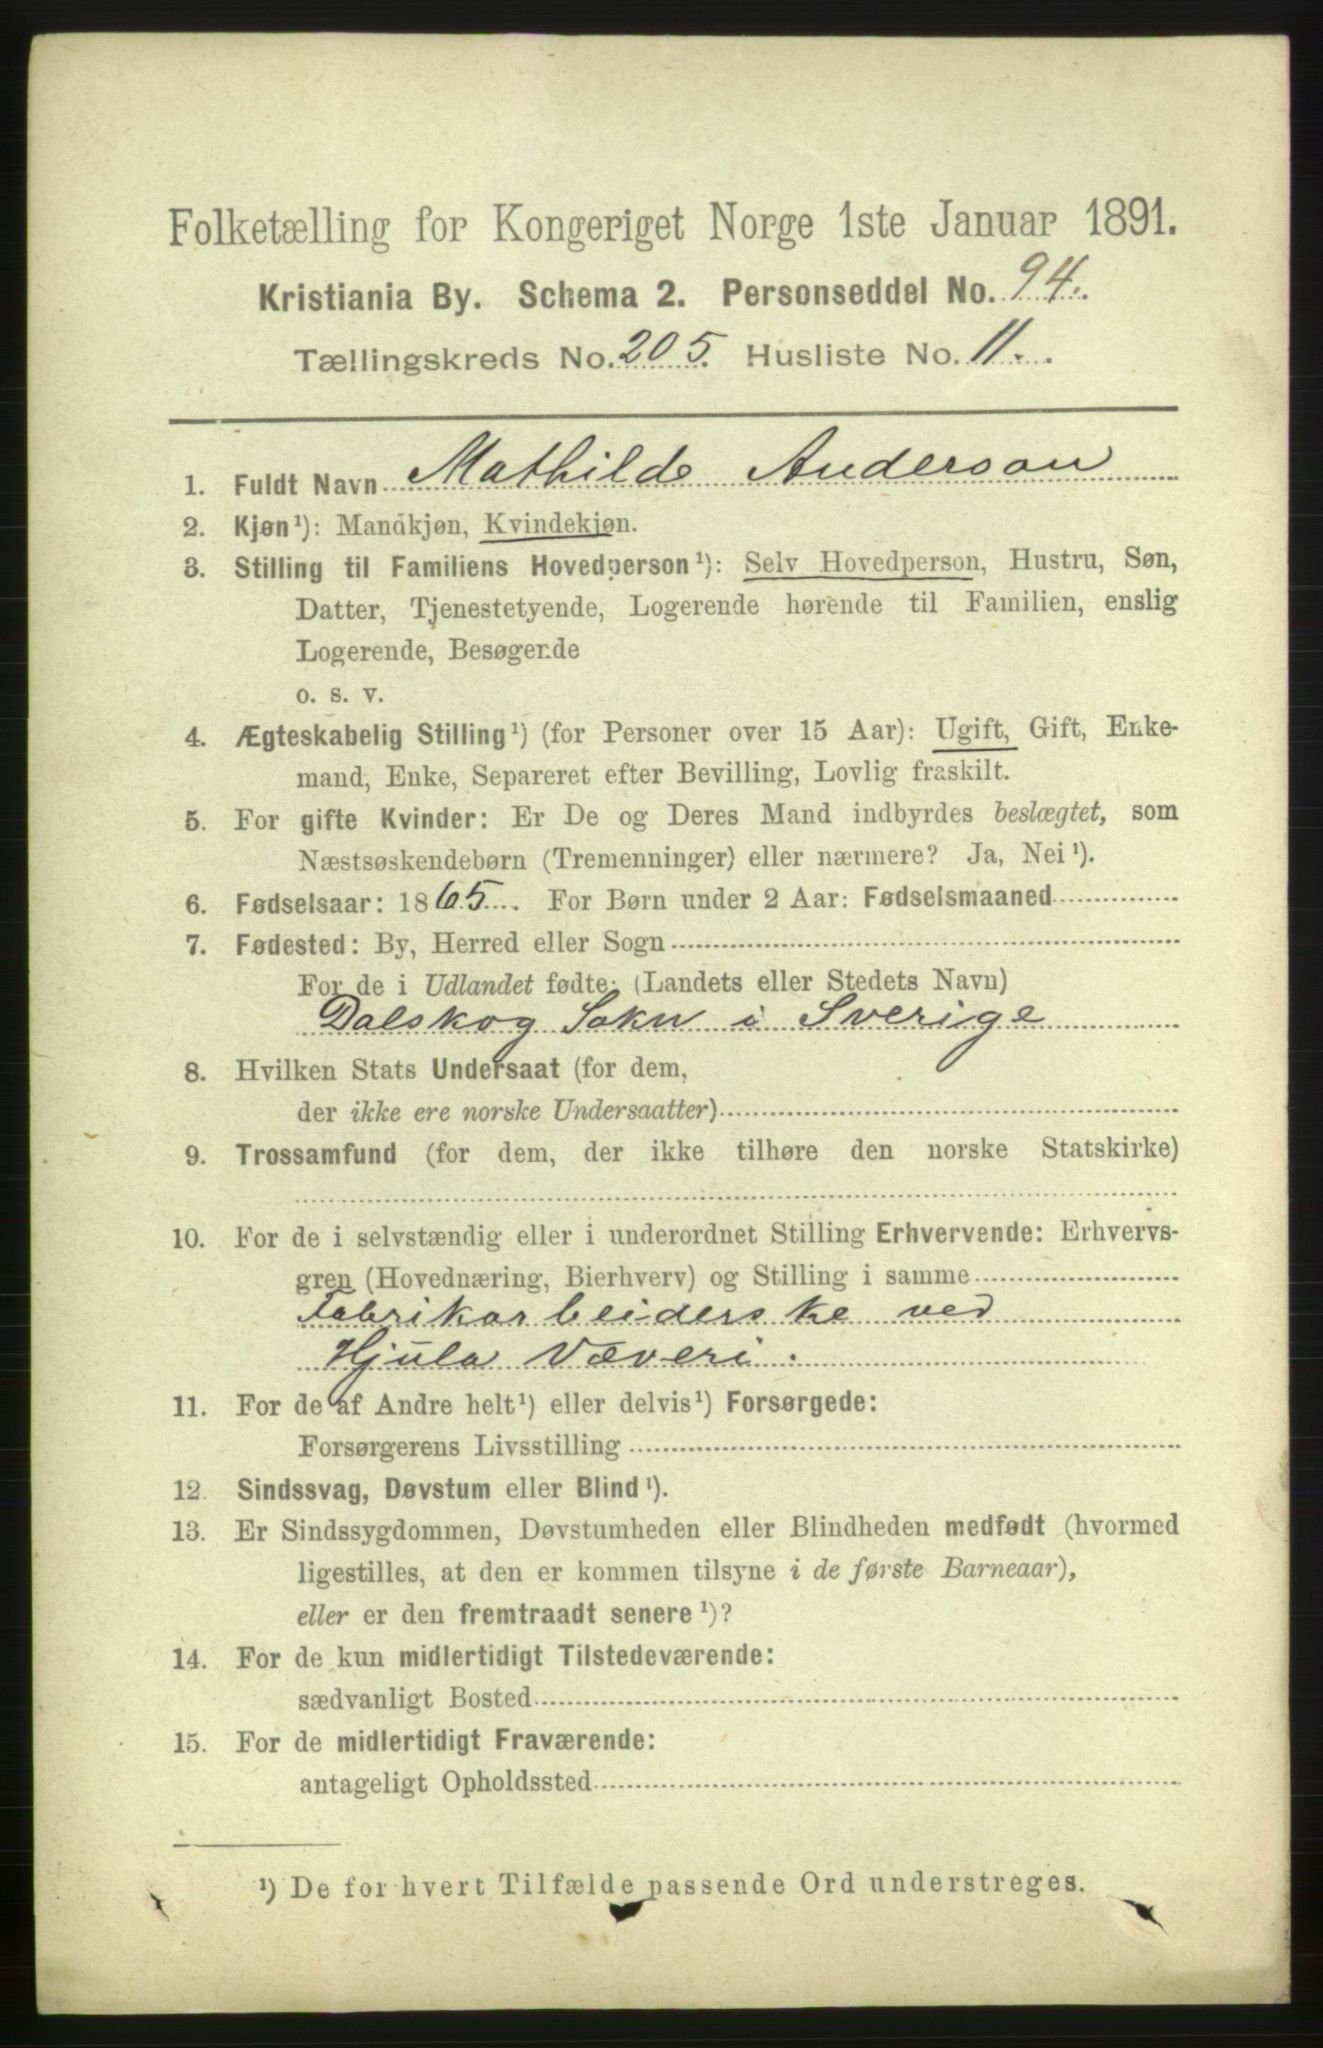 Folketælling for Kongeriget Norge 1ste Januar 1891.
Kristiania By. Schema 2. Personseddel No. 94.
Tællingskreds No. 205. Husliste No. 11.
1. Fuldt Navn Mathilde Anderson
2. Kjøn¹): Mandkjøn, Kvindekjøn.
3. Stilling til Familiens Hovedperson¹): Selv Hovedperson, Hustru, Søn,
Datter, Tjenestetyende, Logerende hørende til Familien, enslig
Logerende, Besøgende
o. s. v.
4. Ægteskabelig Stilling¹) (for Personer over 15 Aar): Ugift, Gift, Enke-
mand, Enke, Separeret efter Bevilling, Lovlig fraskilt.
5. For gifte Kvinder: Er De og Deres Mand indbyrdes beslægtet, som
Næstsøskendebørn (Tremenninger) eller nærmere? Ja, Nei¹).
6. Fødselsaar: 1865. For Børn under 2 Aar: Fødselsmaaned
7. Fødested: By, Herred eller Sogn
For de i Udlandet fødte: (Landets eller Stedets Navn)
Dalskog Sokn i Sverige
8. Hvilken Stats Undersaat (for dem,
der ikke ere norske Undersaatter)
9. Trossamfund (for dem, der ikke tilhøre den norske Statskirke)
10. For de i selvstændig eller i underordnet Stilling Erhvervende: Erhvervs-
gren (Hovednæring, Bierhverv) og Stilling i samme
Fabrikarbeiderske ved
Hjula Væveri.
11. For de af Andre helt¹) eller delvis¹) Forsørgede:
Forsørgerens Livsstilling
12. Sindssvag, Døvstum eller Blind¹).
13. Er Sindssygdommen, Døvstumheden eller Blindheden medfødt (hvormed
ligestilles, at den er kommen tilsyne i de første Barneaar),
eller er den fremtraadt senere¹)?
14. For de kun midlertidigt Tilstedeværende:
sædvanligt Bosted
15. For de midlertidigt Fraværende:
antageligt Opholdssted
¹) De for hvert Tilfælde passende Ord understreges.